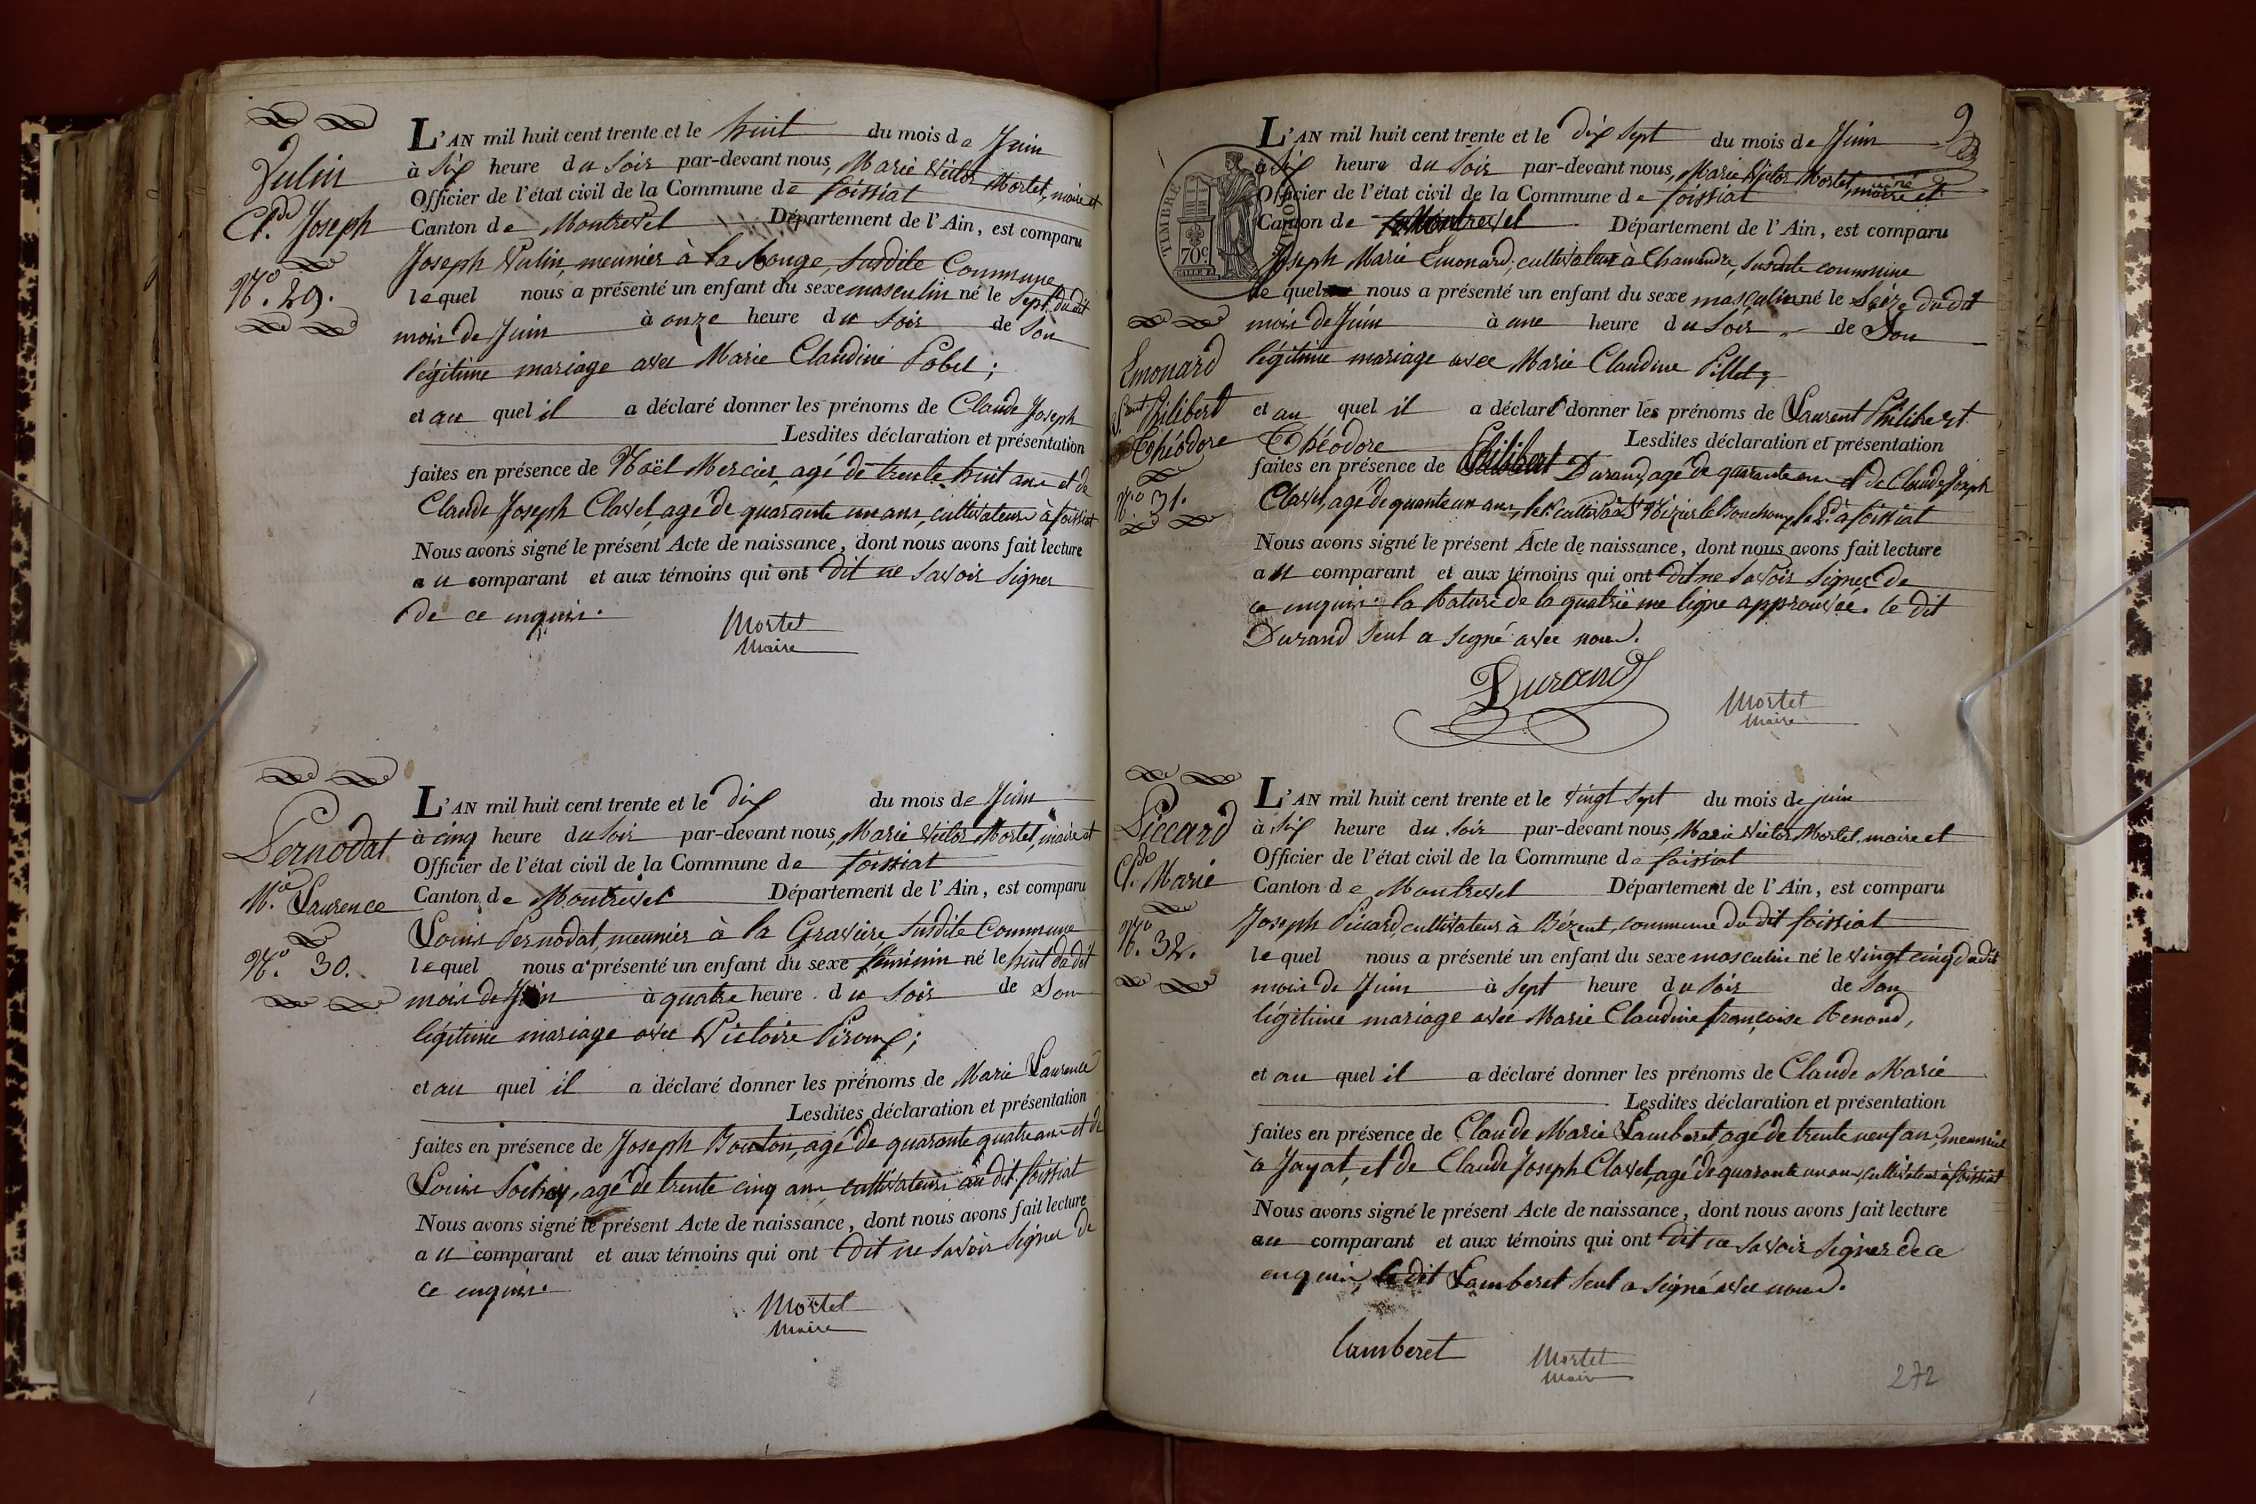 Vulin
Cl.de Joseph
N.o 29.
L'AN mil huit cent trente et le huit du mois de Juin
à six heure du soir par-devant nous, Marie Victor Mortel, maire et
Officier de l'état civil de la Commune de foissiat
Canton de Montrevel Département de l'Ain, est comparu
Joseph Vulin, meunier à la Rouge, susdite Commune
lequel nous a présenté un enfant du sexe masculin né le sept du dit
mois de Juin à onze heure du soir de son
légitime mariage avec Marie Claudine Pobel;
et au quel il a déclaré donner les prénoms de Claude Joseph
Lesdites déclaration et présentation
faites en présence de Noël Mercier, agé de trente huit ans et de
Claude Joseph Clavel, agé de quarante un ans, cultivateurs à foissiat
Nous avons signé le présent Acte de naissance, dont nous avons fait lecture
au comparant et aux témoins qui ont dit ne savoir signer
de ce enquis.
Mortel
Maire
Pernodat
M.ie Laurence
N.o 30.
L'AN mil huit cent trente et le dix du mois de Juin
à cinq heure du soir par-devant nous, Marie Victor Mortel, maire et
Officier de l'état civil de la Commune de foissiat
Canton de Montrevel Département de l'Ain, est comparu
Louis Pernodat, meunier à la Gravière susdite Commune
lequel nous a présenté un enfant du sexe féminin né le huit du dit
mois de Juin à quatre heure du soir de son
légitime mariage avec Victoire Piroux;
et au quel il a déclaré donner les prénoms de Marie Laurence
Lesdites déclaration et présentation
faites en présence de Joseph Bouton, agé de quarante quatre ans et de
Louis, agé de trente cinq ans cultivateurs au dit foissiat
Nous avons signé le présent Acte de naissance, dont nous avons fait lecture
au comparant et aux témoins qui ont dit ne savoir signer de
ce enquis.
Mortel
Maire
TIMBRE ROYAL
70c
Emonard
L.ent Philibert
Théodore
N.o 31.
L'AN mil huit cent trente et le dix sept du mois de Juin
à six heure du soir par-devant nous, Marie Victor Mortel, maire et
Officier de l'état civil de la Commune de foissiat
Canton de Montrevel Département de l'Ain, est comparu
Joseph Marie Emonard, cultivateur à Chamandre, susdite commune
le quel nous a présenté un enfant du sexe masculin né le seize du dit
mois de Juin à une heure du soir de son
légitime mariage avec Marie Claudine Pillet;
et au quel il a déclaré donner les prénoms de Laurent Philibert
Théodore Lesdites déclaration et présentation
faites en présence de Philibert Durand, agé de quarante ans et de Claude Joseph
Clavel, agé de quante un ans, le 1.er cultiv. à St Nizier le Bouchoux, le 2.d à foissiat
Nous avons signé le présent Acte de naissance, dont nous avons fait lecture
au comparant et aux témoins qui ont dit ne savoir signer de
ce enquis. la rature de la quatrième ligne approuvée. le dit
Durand seul a signé avec nous.
Durand
Mortel
Maire
Piccard
Cl.de Marie
N.o 32.
L'AN mil huit cent trente et le vingt sept du mois de juin
à six heure du soir par-devant nous, Marie Victor Mortel, maire et
Officier de l'état civil de la Commune de foissiat
Canton de Montrevel Département de l'Ain, est comparu
Joseph Piccard, cultivateur à Bézent, commune du dit foissiat
lequel nous a présenté un enfant du sexe masculin né le vingt cinq du dit
mois de Juin à sept heure du soir de son
légitime mariage avec Marie Claudine françoise Renoud,
et au quel il a déclaré donner les prénoms de Claude Marie
Lesdites déclaration et présentation
faites en présence de Claude Marie Lamberet agé de trente neuf ans, meunier
à Jayat, et de Claude Joseph Clavel, agé de quarante un ans, cultivateur à foissiat
Nous avons signé le présent Acte de naissance, dont nous avons fait lecture
au comparant et aux témoins qui ont dit ne savoir signer de ce
enquis, le dit Lamberet seul a signé avec nous.
lamberet
Mortel
Maire
272